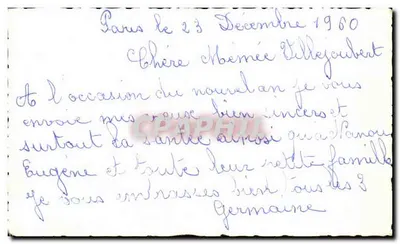 Paris le 23 Décembre 1960
Chère Mémée Villejoubert
A l'occasion du nouvelan je vous
envoie mes veux bien sincers et
surtout la santé ainsi qua
Eugène et toute leur petite famille
Je vous embrasses bien tous les 3
Germaine